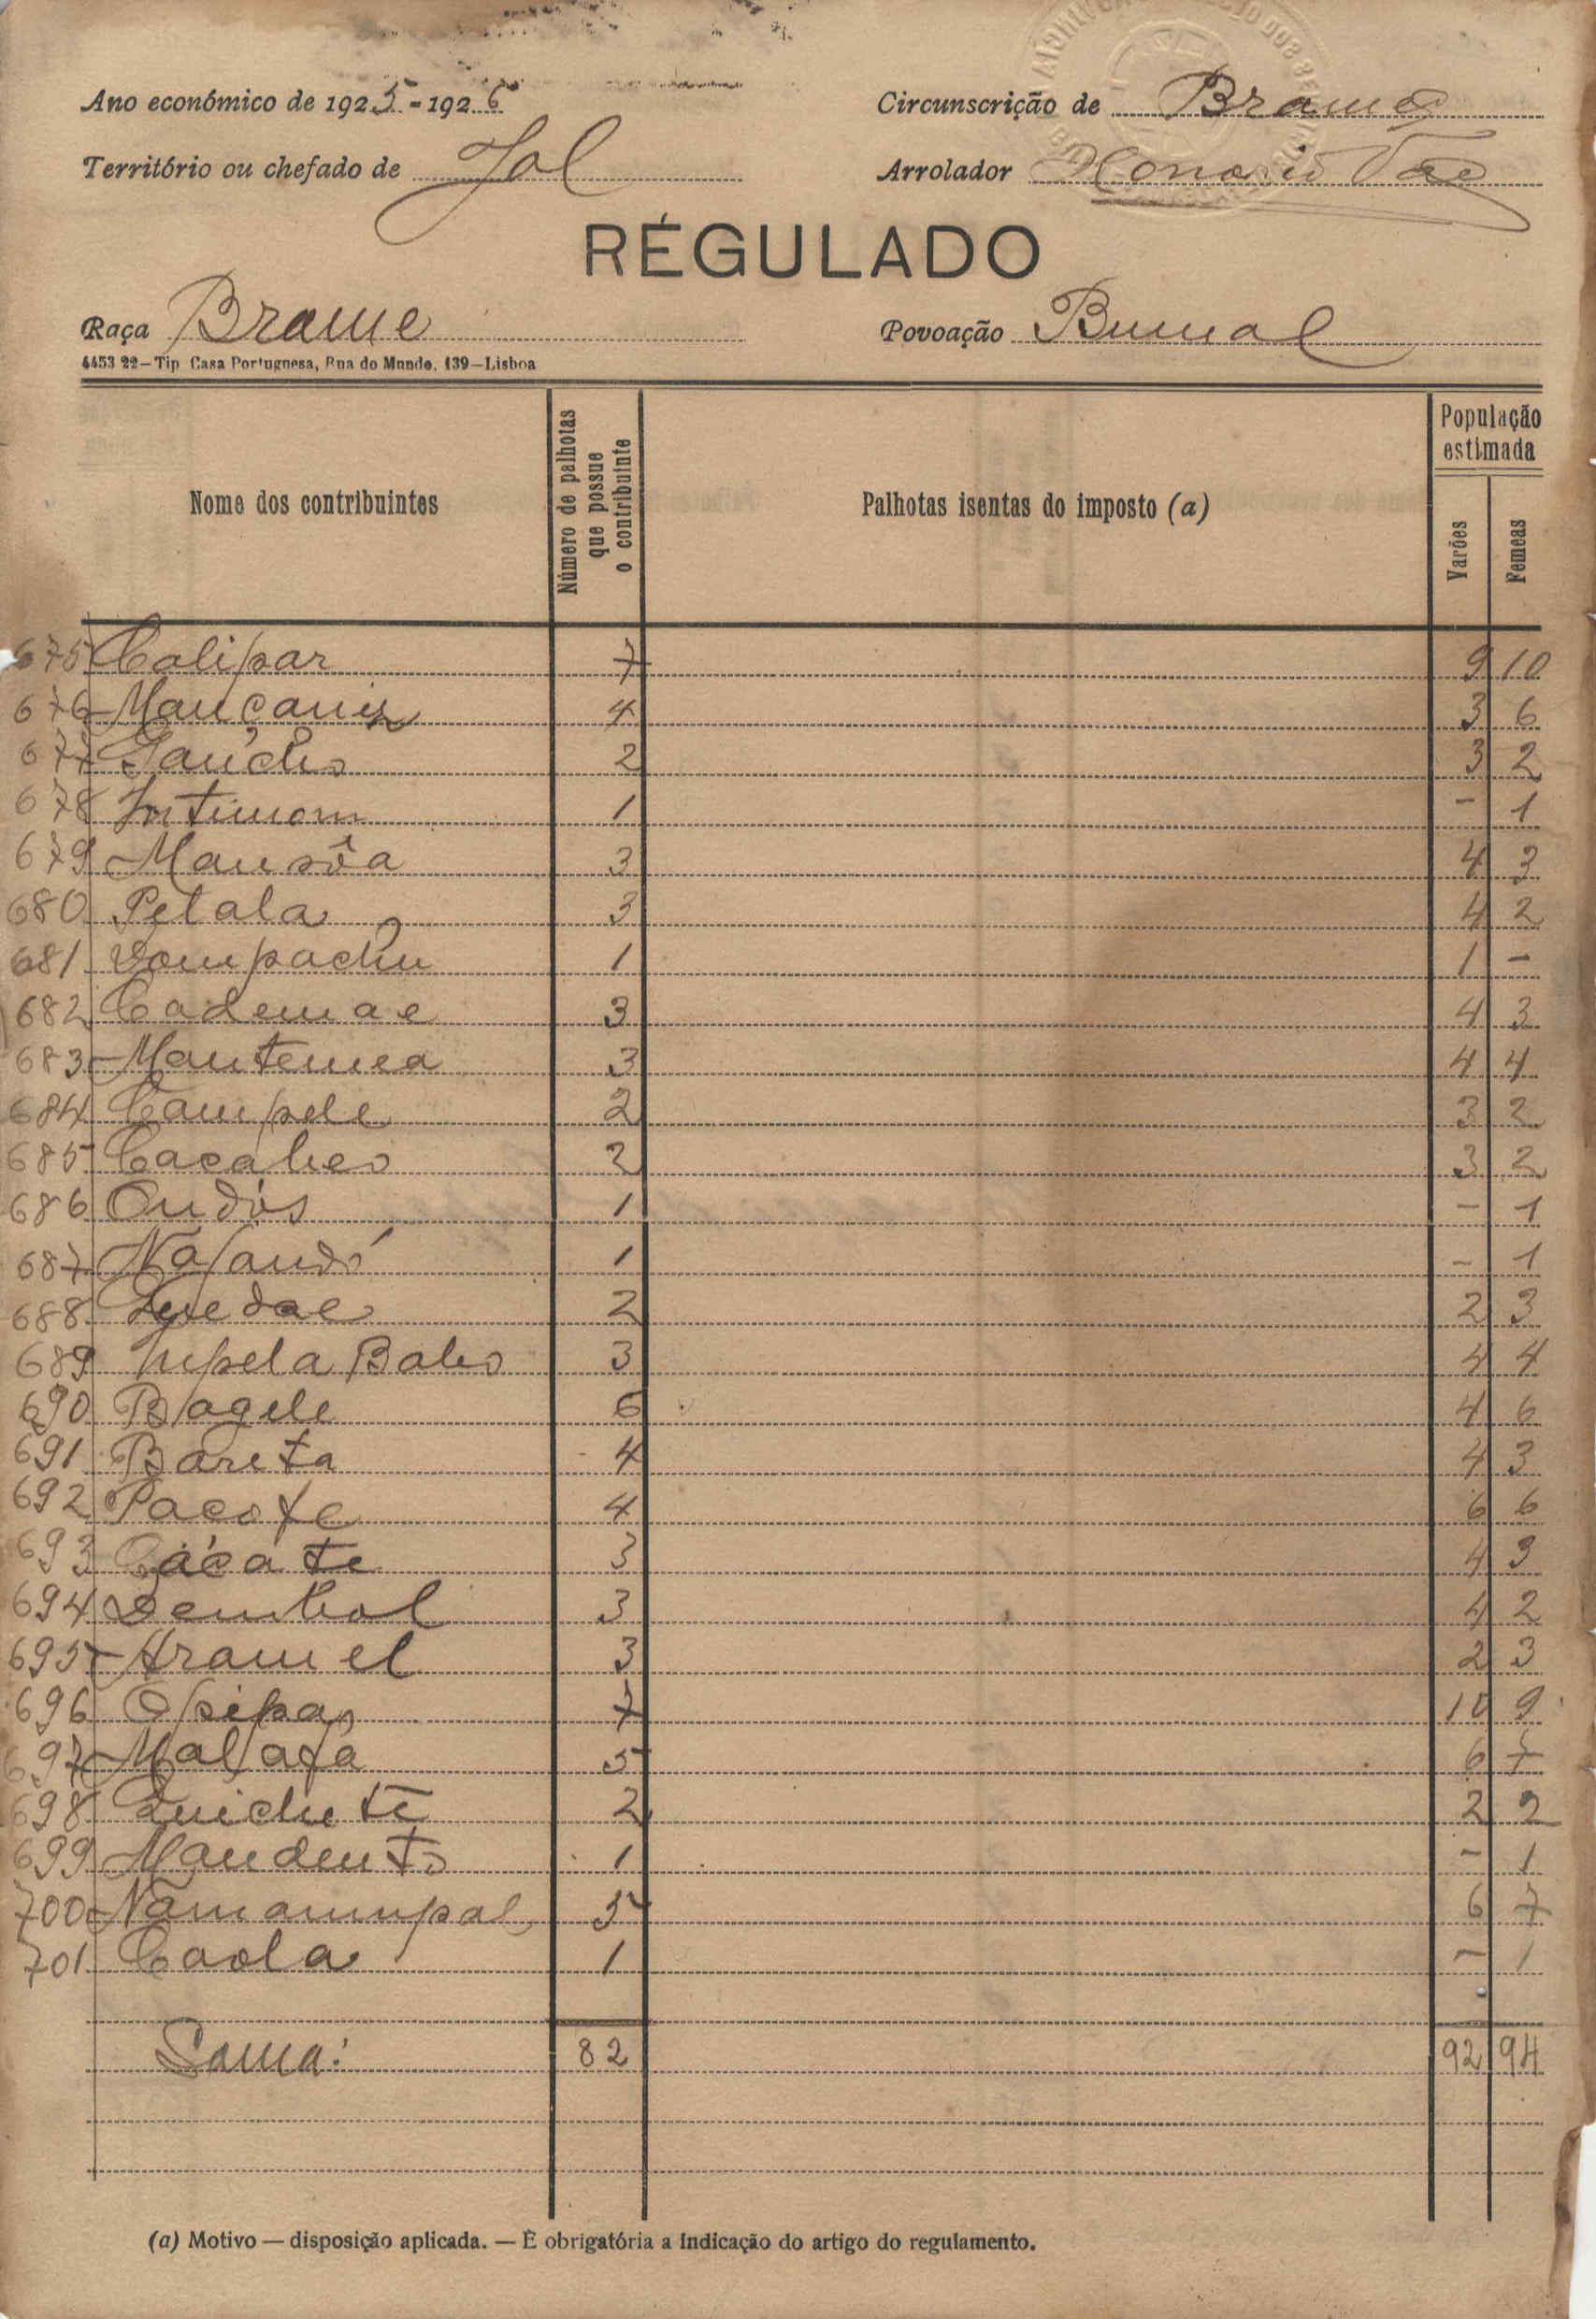 Ano económico de 1925-1926
Circunscrição de Brame
Território ou chefado de Jol
Arrolador Honorio Vaz
RÉGULADO
Raça Brame
Povoação Bumal
4453 22—Tip Casa Portuguesa, Rua do Mundo, 139—Lisboa
Nome dos contribuintes
Número de palhotas que possue o contribuinte
Palhotas isentas do imposto (a)
População estimada
Varões
Femeas
675 Calipar 7 9 10
676 4 3 6
677 2 3 2
678 1 - 1
679 Mansôa 3 4 3
680 Petala 3 4 2
681 Dompachu 1 1 -
682 Cademae 3 4 3
683 3 4 4
684 Campele 2 3 2
685 2 3 2
686 Ondós 1 - 1
687 1 - 1
688 2 2 3
689 Upela 3 4 4
690 Bagele 6 4 6
691 Bareta 4 4 3
692 Pacote 4 6 6
693 Cácáte 3 4 3
694 3 4 2
695 Aramel 3 2 3
696 Opipa 7 10 9
697 Malafa 5 6 7
698 Quichute 2 2 2
699 Mandento 1 - 1
700 Namanupal 5 6 7
701 Caola 1 - 1
Soma: 82 92 94
(a) Motivo — disposição aplicada. — É obrigatória a indicação do artigo do regulamento.